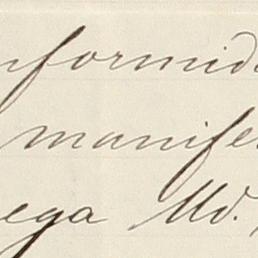 nformid
manife
ega Md.